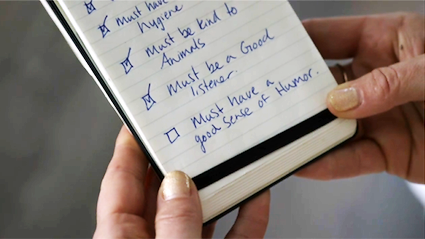 Must have
hygiene
Must be kind to
Animals
Must be a Good
listener.
Must have a
good sense of Humor.